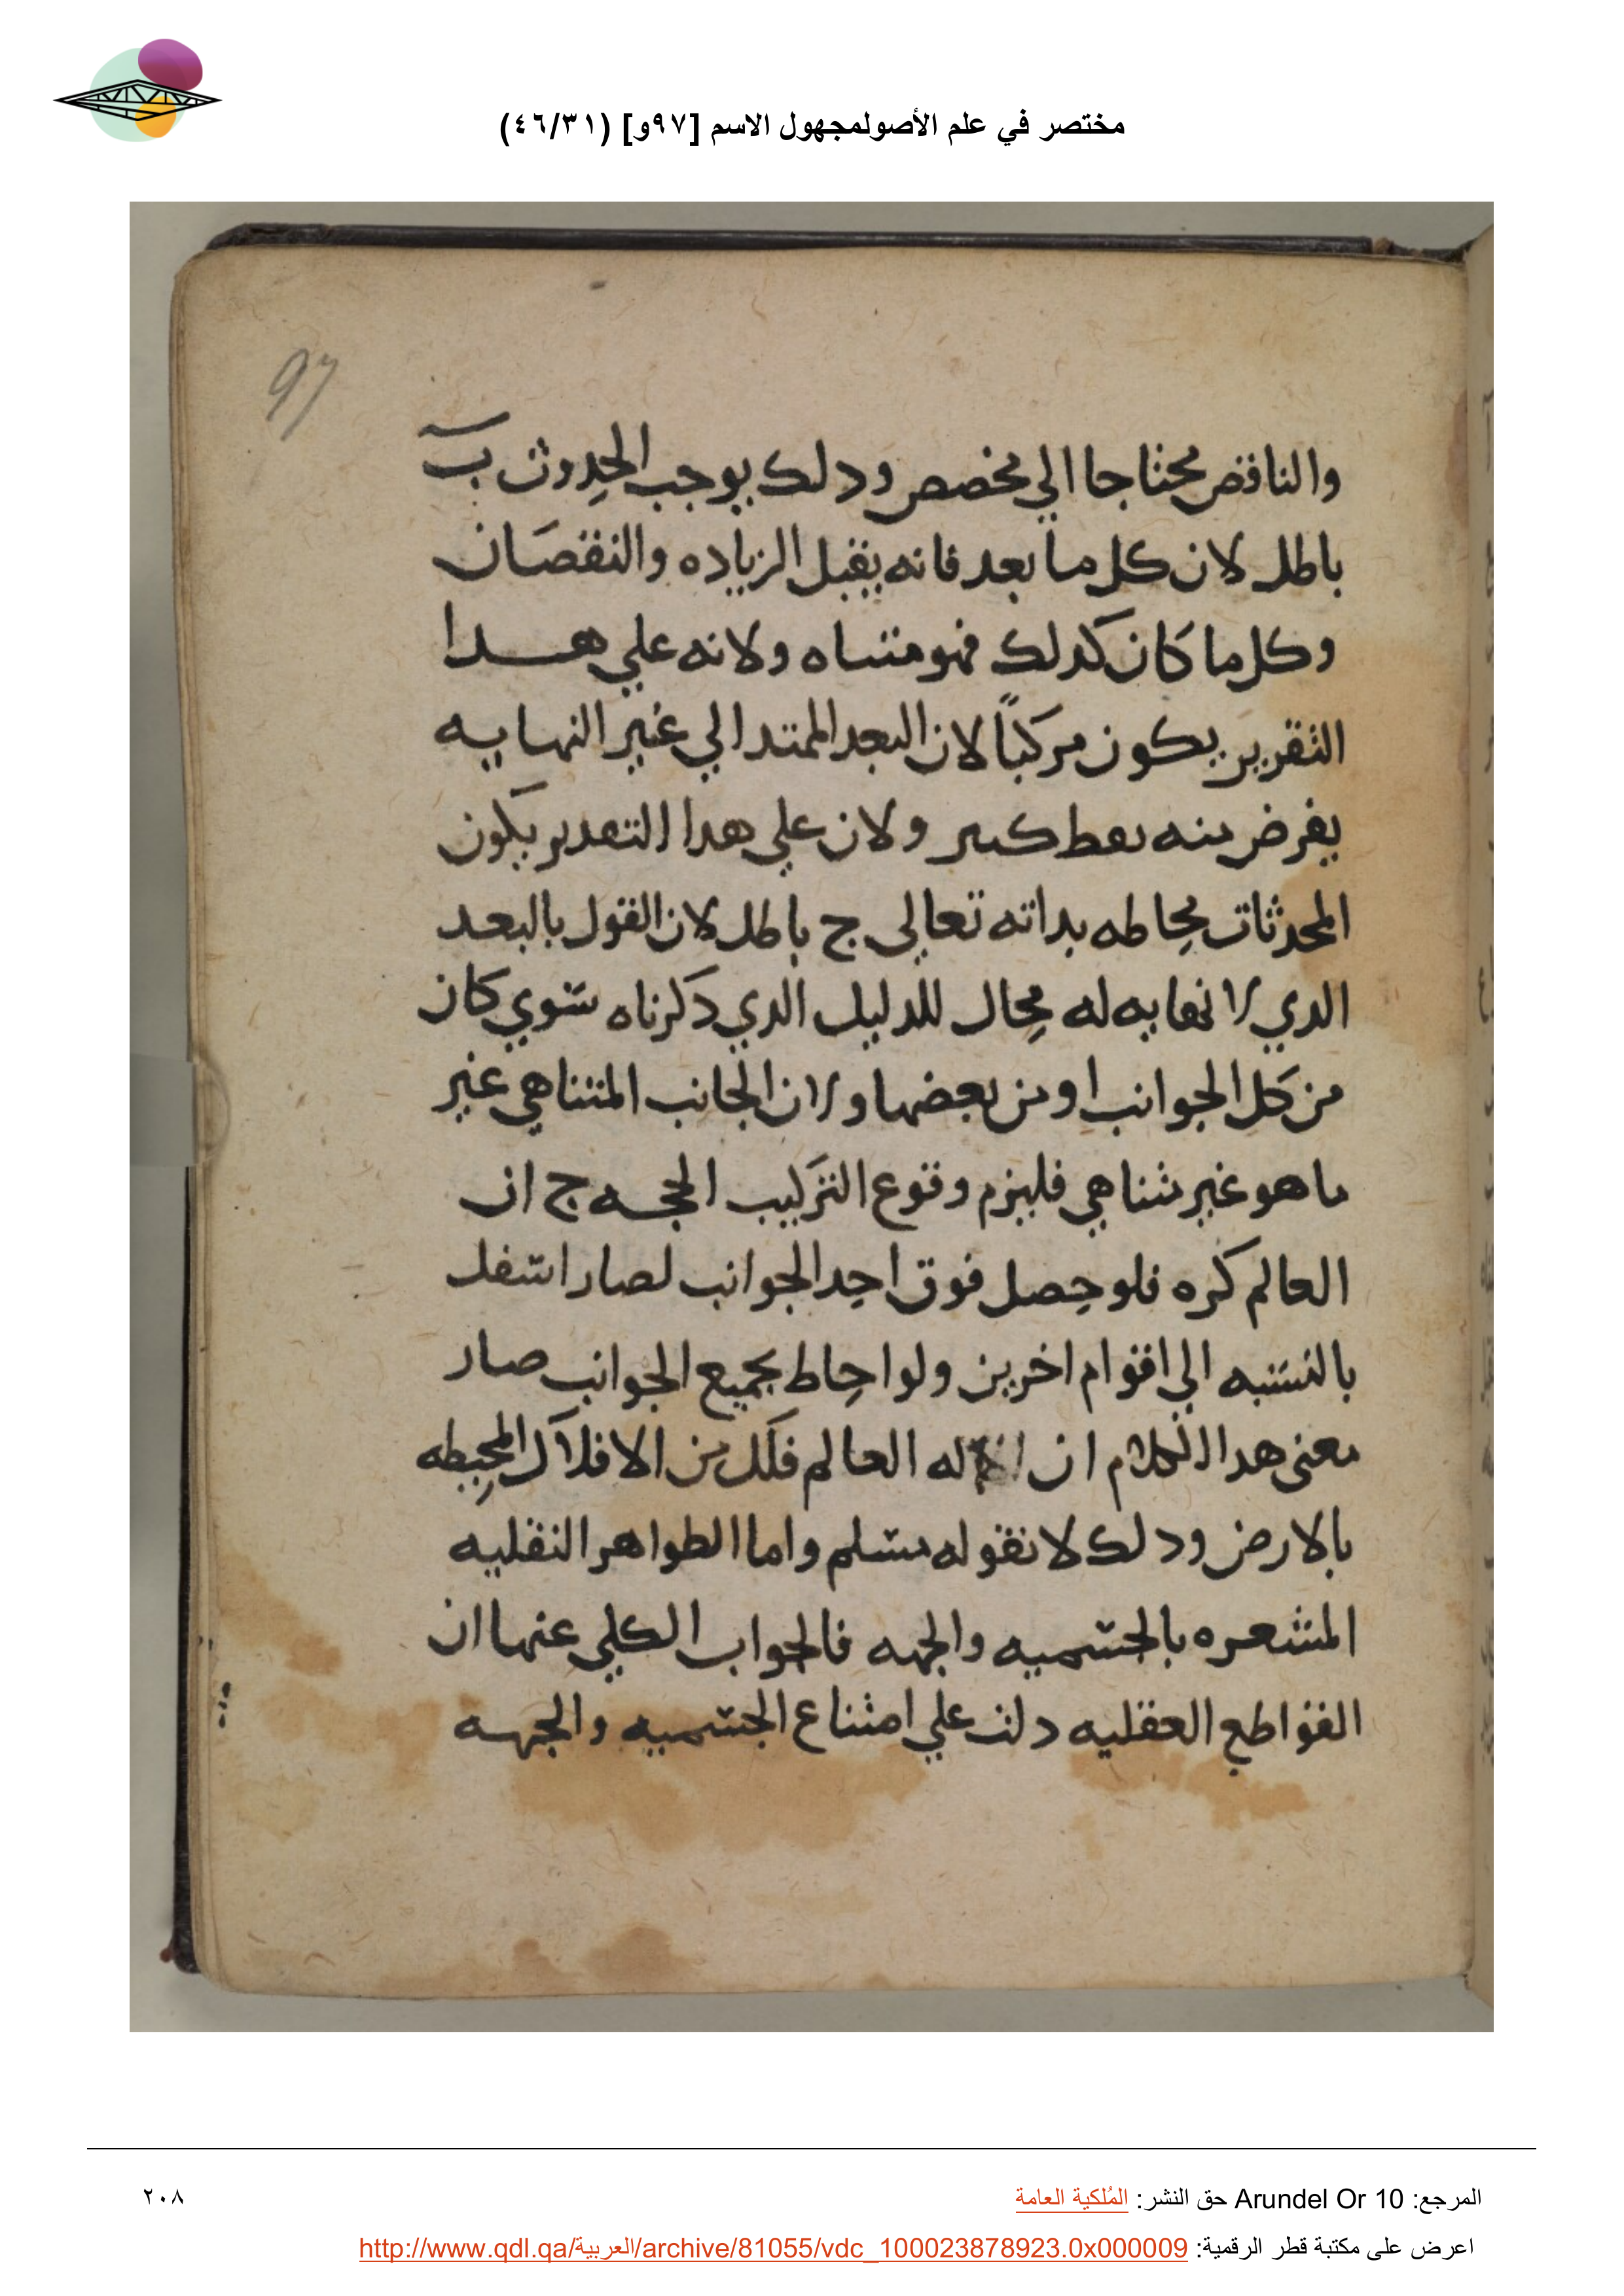 مختصر في علم الأصولمجهول الاسم [٩٧و] (٤٦/٣١)
97
والناقص محتاجا الي مخصص ودلك يوجب الحدوث ب
باطل لان كل ما بعد فانه يقبل الزياده والنقصان
وكل ما كان كدلك فهو متناه ولانه علي هدا
التقرير يكون مركباً لان البعد الممتد الي غير النهايه
يفرض منه نقط كثير ولان علي هدا التقدير يكون
المحدثات محاطه بداته تعالي ج باطل لان القول بالبعد
الدي لا نهايه له محال للدليل الدي دكرناه سوي كان
من كل الجوانب او من بعضها ولان الجانب المتناهي غير
ما هو غير متناهي فليزم وقوع التركيب الحجه ج ان
العالم كره فلو حصل فوق احد الجوانب لصار اسفل
بالنسبه الي اقوام اخرين ولو احاط بجميع الجوانب صار
معني هدا الكلام ان اله العالم فلك من الافلاك المحيطه
بالارض ودلك لا نقوله مسلم واما الطواهر النقليه
المشعره بالجسميه والجهه فالجواب الكلي عنها ان
القواطع العقليه دلت علي امتناع الجسميه والجهه
المرجع: Arundel Or 10 حق النشر: المُلكية العامة
٢٠٨
اعرض على مكتبة قطر الرقمية: http://www.qdl.qa/العربية/archive/81055/vdc_100023878923.0x000009